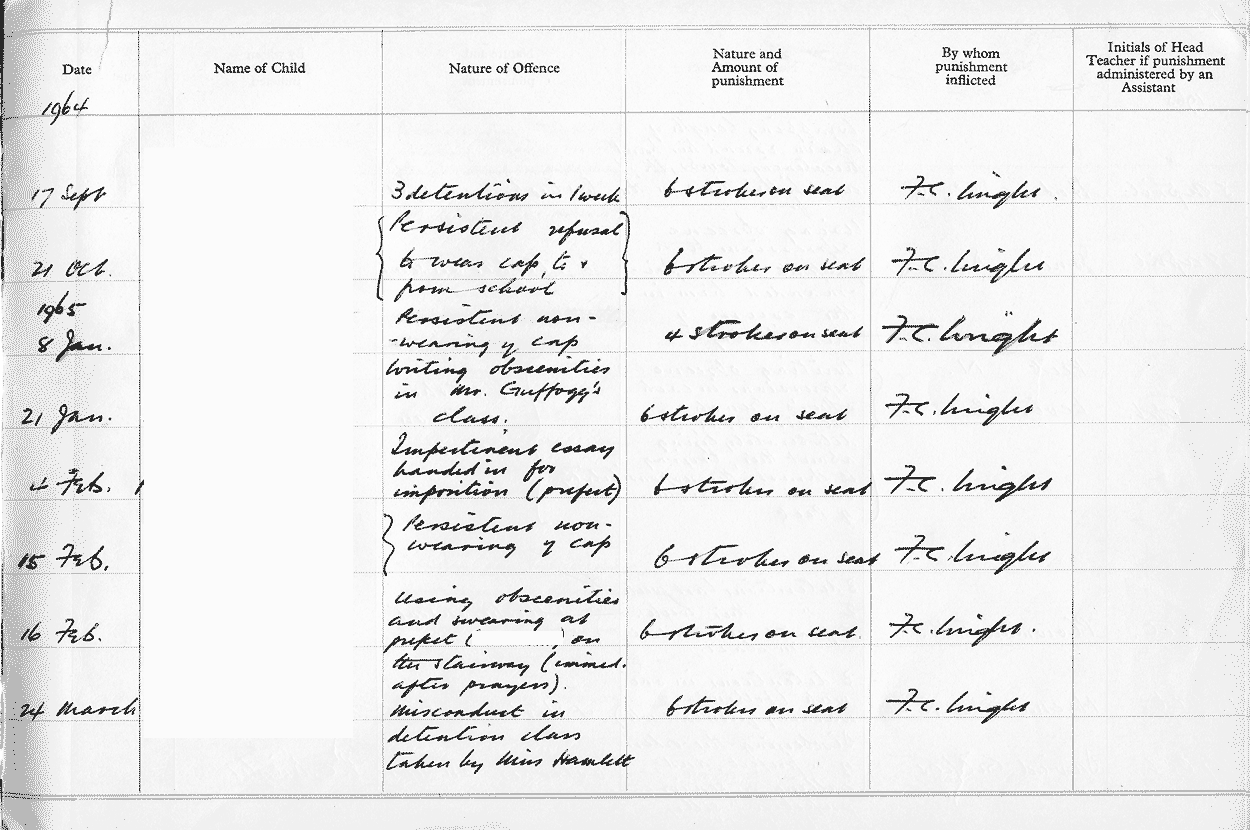 Date
Name of Child
Nature of Offence
Nature and
Amount of
punishment
By whom
punishment
inflicted
Initials of Head
Teacher if punishment
administered by an
Assistant
1964
17 Sept
3 detentions in 1 week
6 strokes on seat
F.C.
21 Oct.
Persistent refusal
to wear cap, to &
from school
6 strokes on seat
F.C.
1965
8 Jan.
Persistent non-
-wearing of cap
4 strokes on seat
F.C.
21 Jan.
Writing obscenities
in Mr. Guffogg's
class.
6 strokes on seat
F.C.
4 Feb.
Impertinent essay
handed in for
imposition (prefect)
6 strokes on seat
F.C.
15 Feb.
Persistent non-
wearing of cap
6 strokes on seat
F.C.
16 Feb.
Using obscenities
and swearing at
prefect ( ) on
the stairway (immed.
after prayers).
6 strokes on seat.
F.C.
24 March
Misconduct in
detention class
taken by Miss Hamlett
6 strokes on seat
F.C.